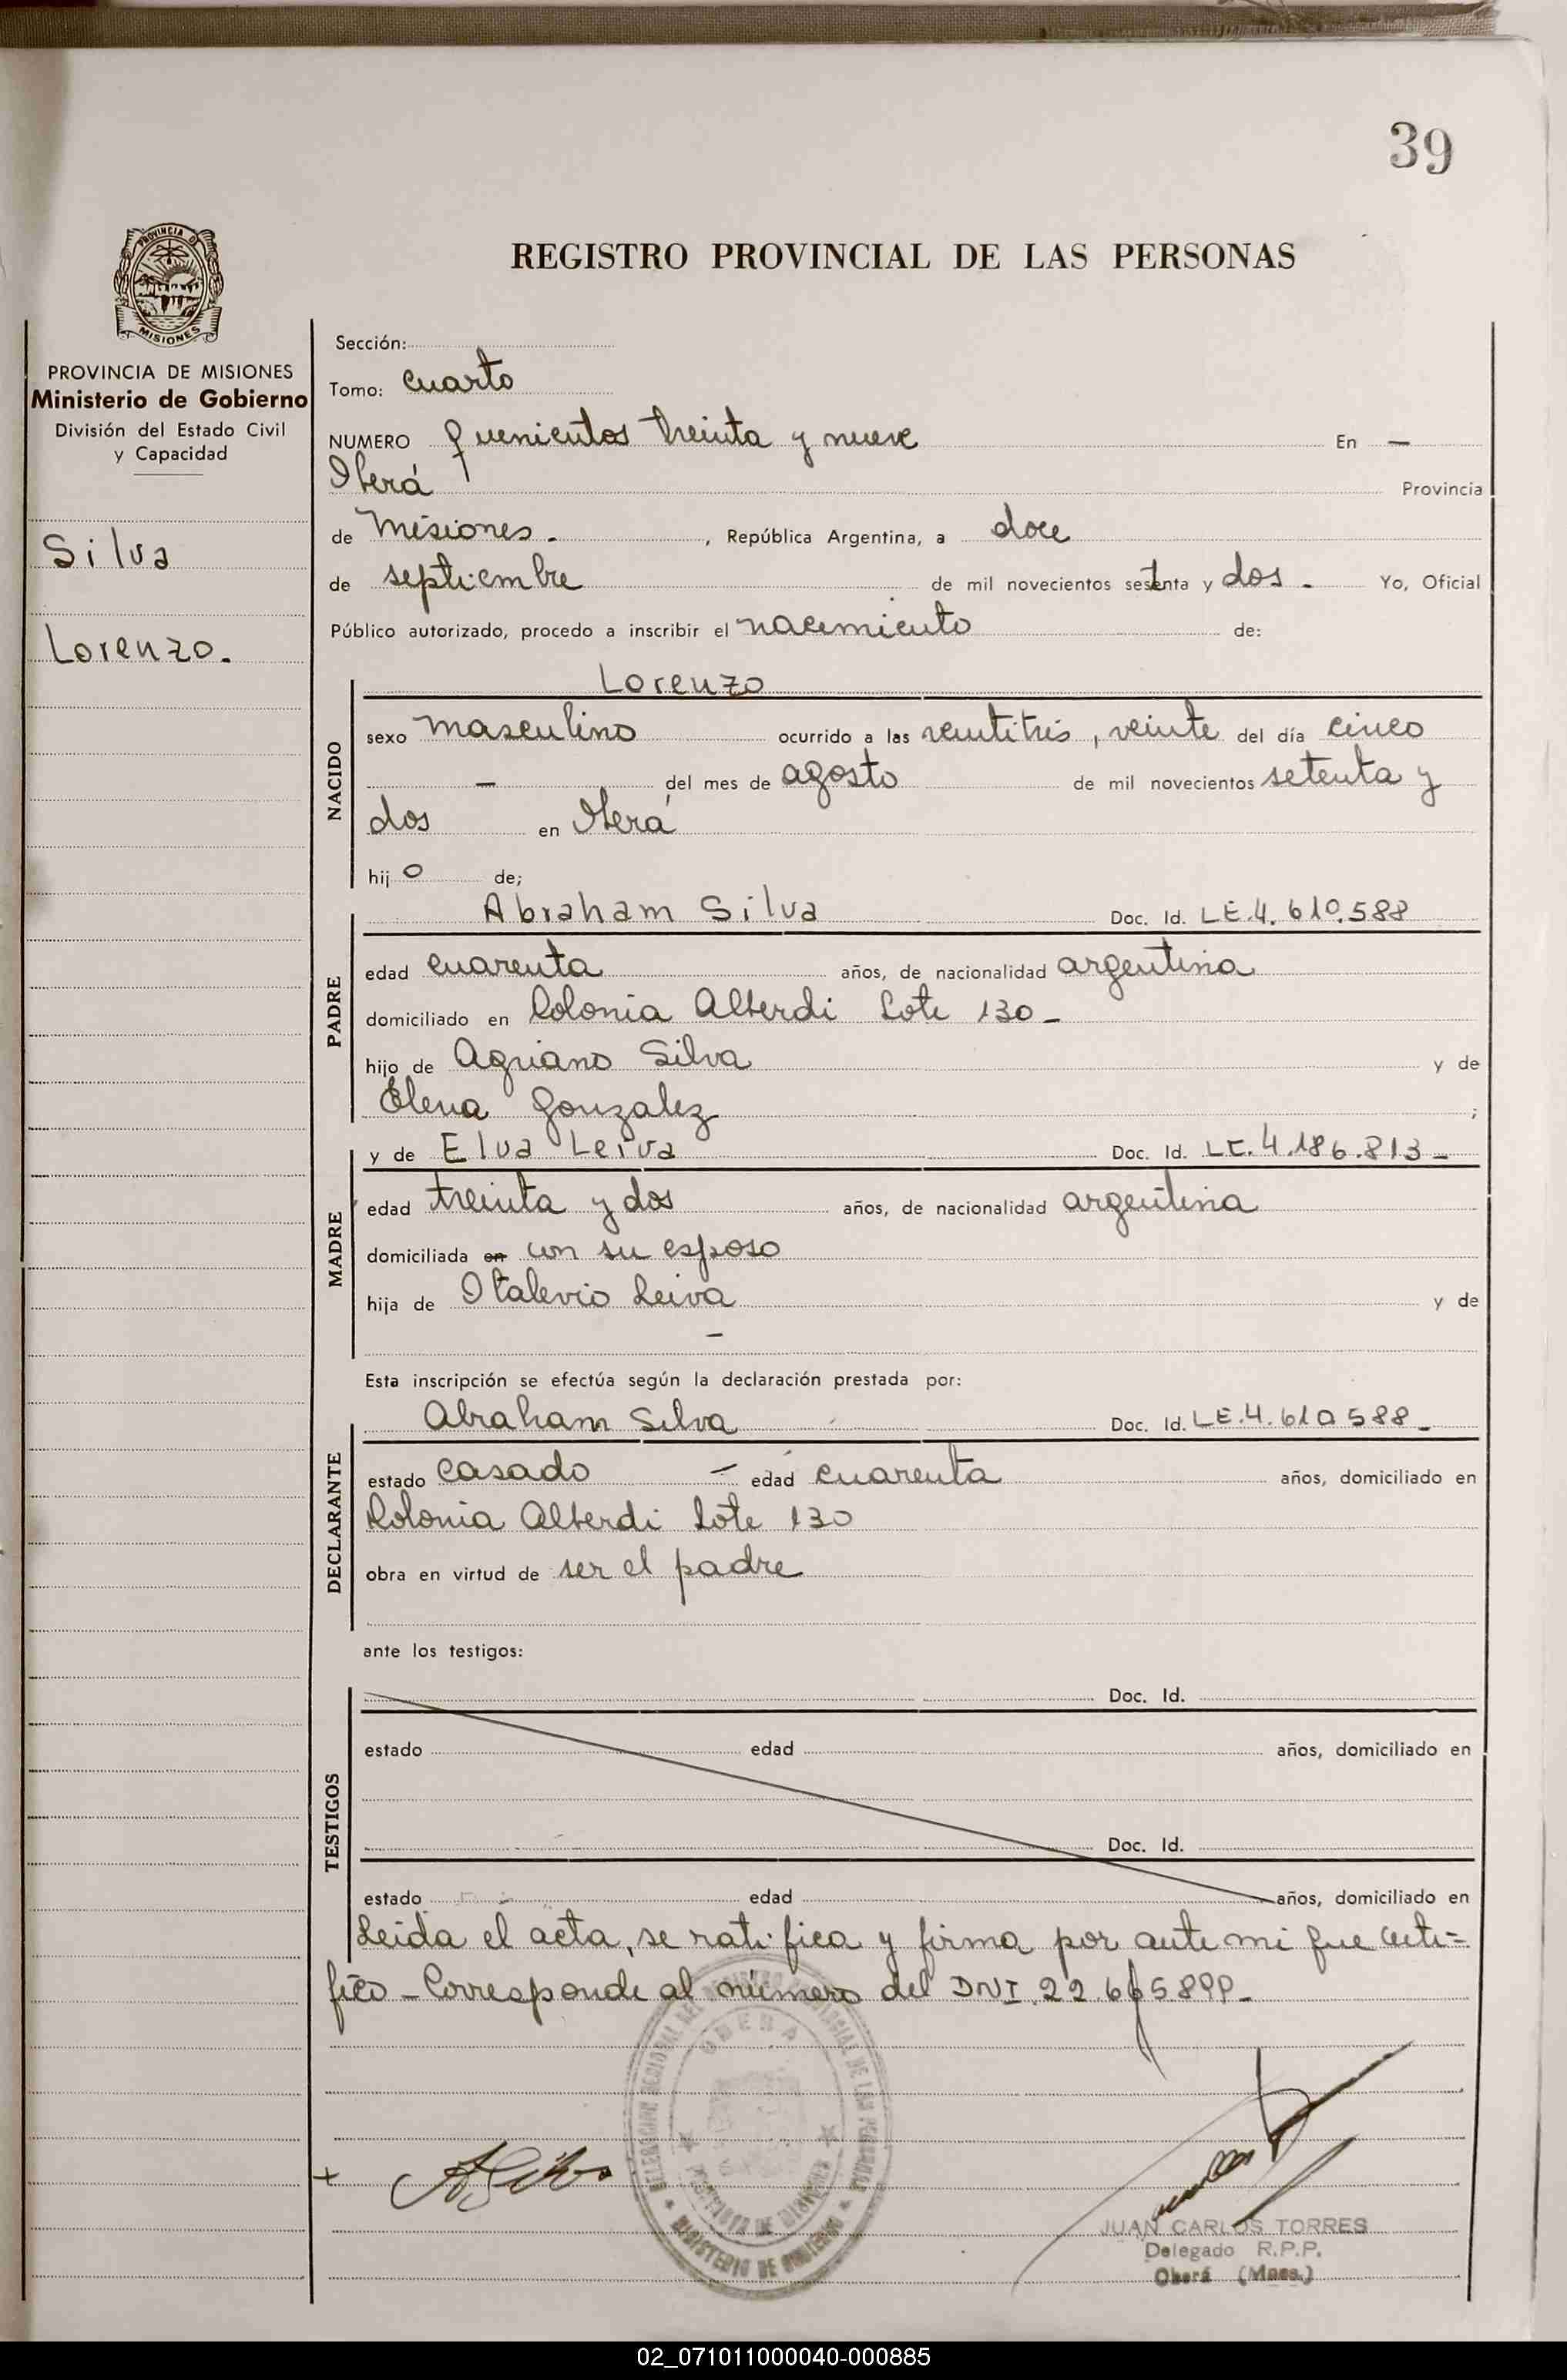 39
PROVINCIA DE
MISIONES
REGISTRO PROVINCIAL DE LAS PERSONAS
PROVINCIA DE MISIONES
Ministerio de Gobierno
División del Estado Civil
y Capacidad
Silva
Lorenzo.
Sección:
Tomo: cuarto
NUMERO quenientos treinta y nueve En —
Oberá Provincia
de Misiones. , República Argentina, a doce
de septiembre de mil novecientos setenta y dos. Yo, Oficial
Público autorizado, procedo a inscribir el nacimiento de:
Lorenzo
NACIDO
sexo masculino ocurrido a las veintitrés, veinte del día cinco
— del mes de agosto de mil novecientos setenta y
dos en Oberá
hijo de;
Abraham Silva Doc. Id. LE.4.610.588
PADRE
edad cuarenta años, de nacionalidad argentina
domiciliado en Colonia Alberdi Lote 130 -
hijo de Agriano Silva y de
Elena Gonzalez ;
y de Elva Leiva Doc. Id. LC.4.186.813 -
MADRE
edad treinta y dos años, de nacionalidad argentina
domiciliada en con su esposo
hija de Italevio Leiva y de
—
Esta inscripción se efectúa según la declaración prestada por:
Abraham Silva Doc. Id. LE.4.610588 -
DECLARANTE
estado casado — edad cuarenta años, domiciliado en
Colonia Alberdi Lote 130
obra en virtud de ser el padre
ante los testigos:
Doc. Id.
TESTIGOS
estado edad años, domiciliado en
Doc. Id.
estado edad años, domiciliado en
Leida el acta, se ratifica y firma por ante mi que certi=
fico - Corresponde al número del DNI.
OBERA
MINISTERIO DE GOBIERNO
ASilva
JUAN CARLOS TORRES
Delegado R.P.P.
Oberá (Mnes.)
02_071011000040-000885